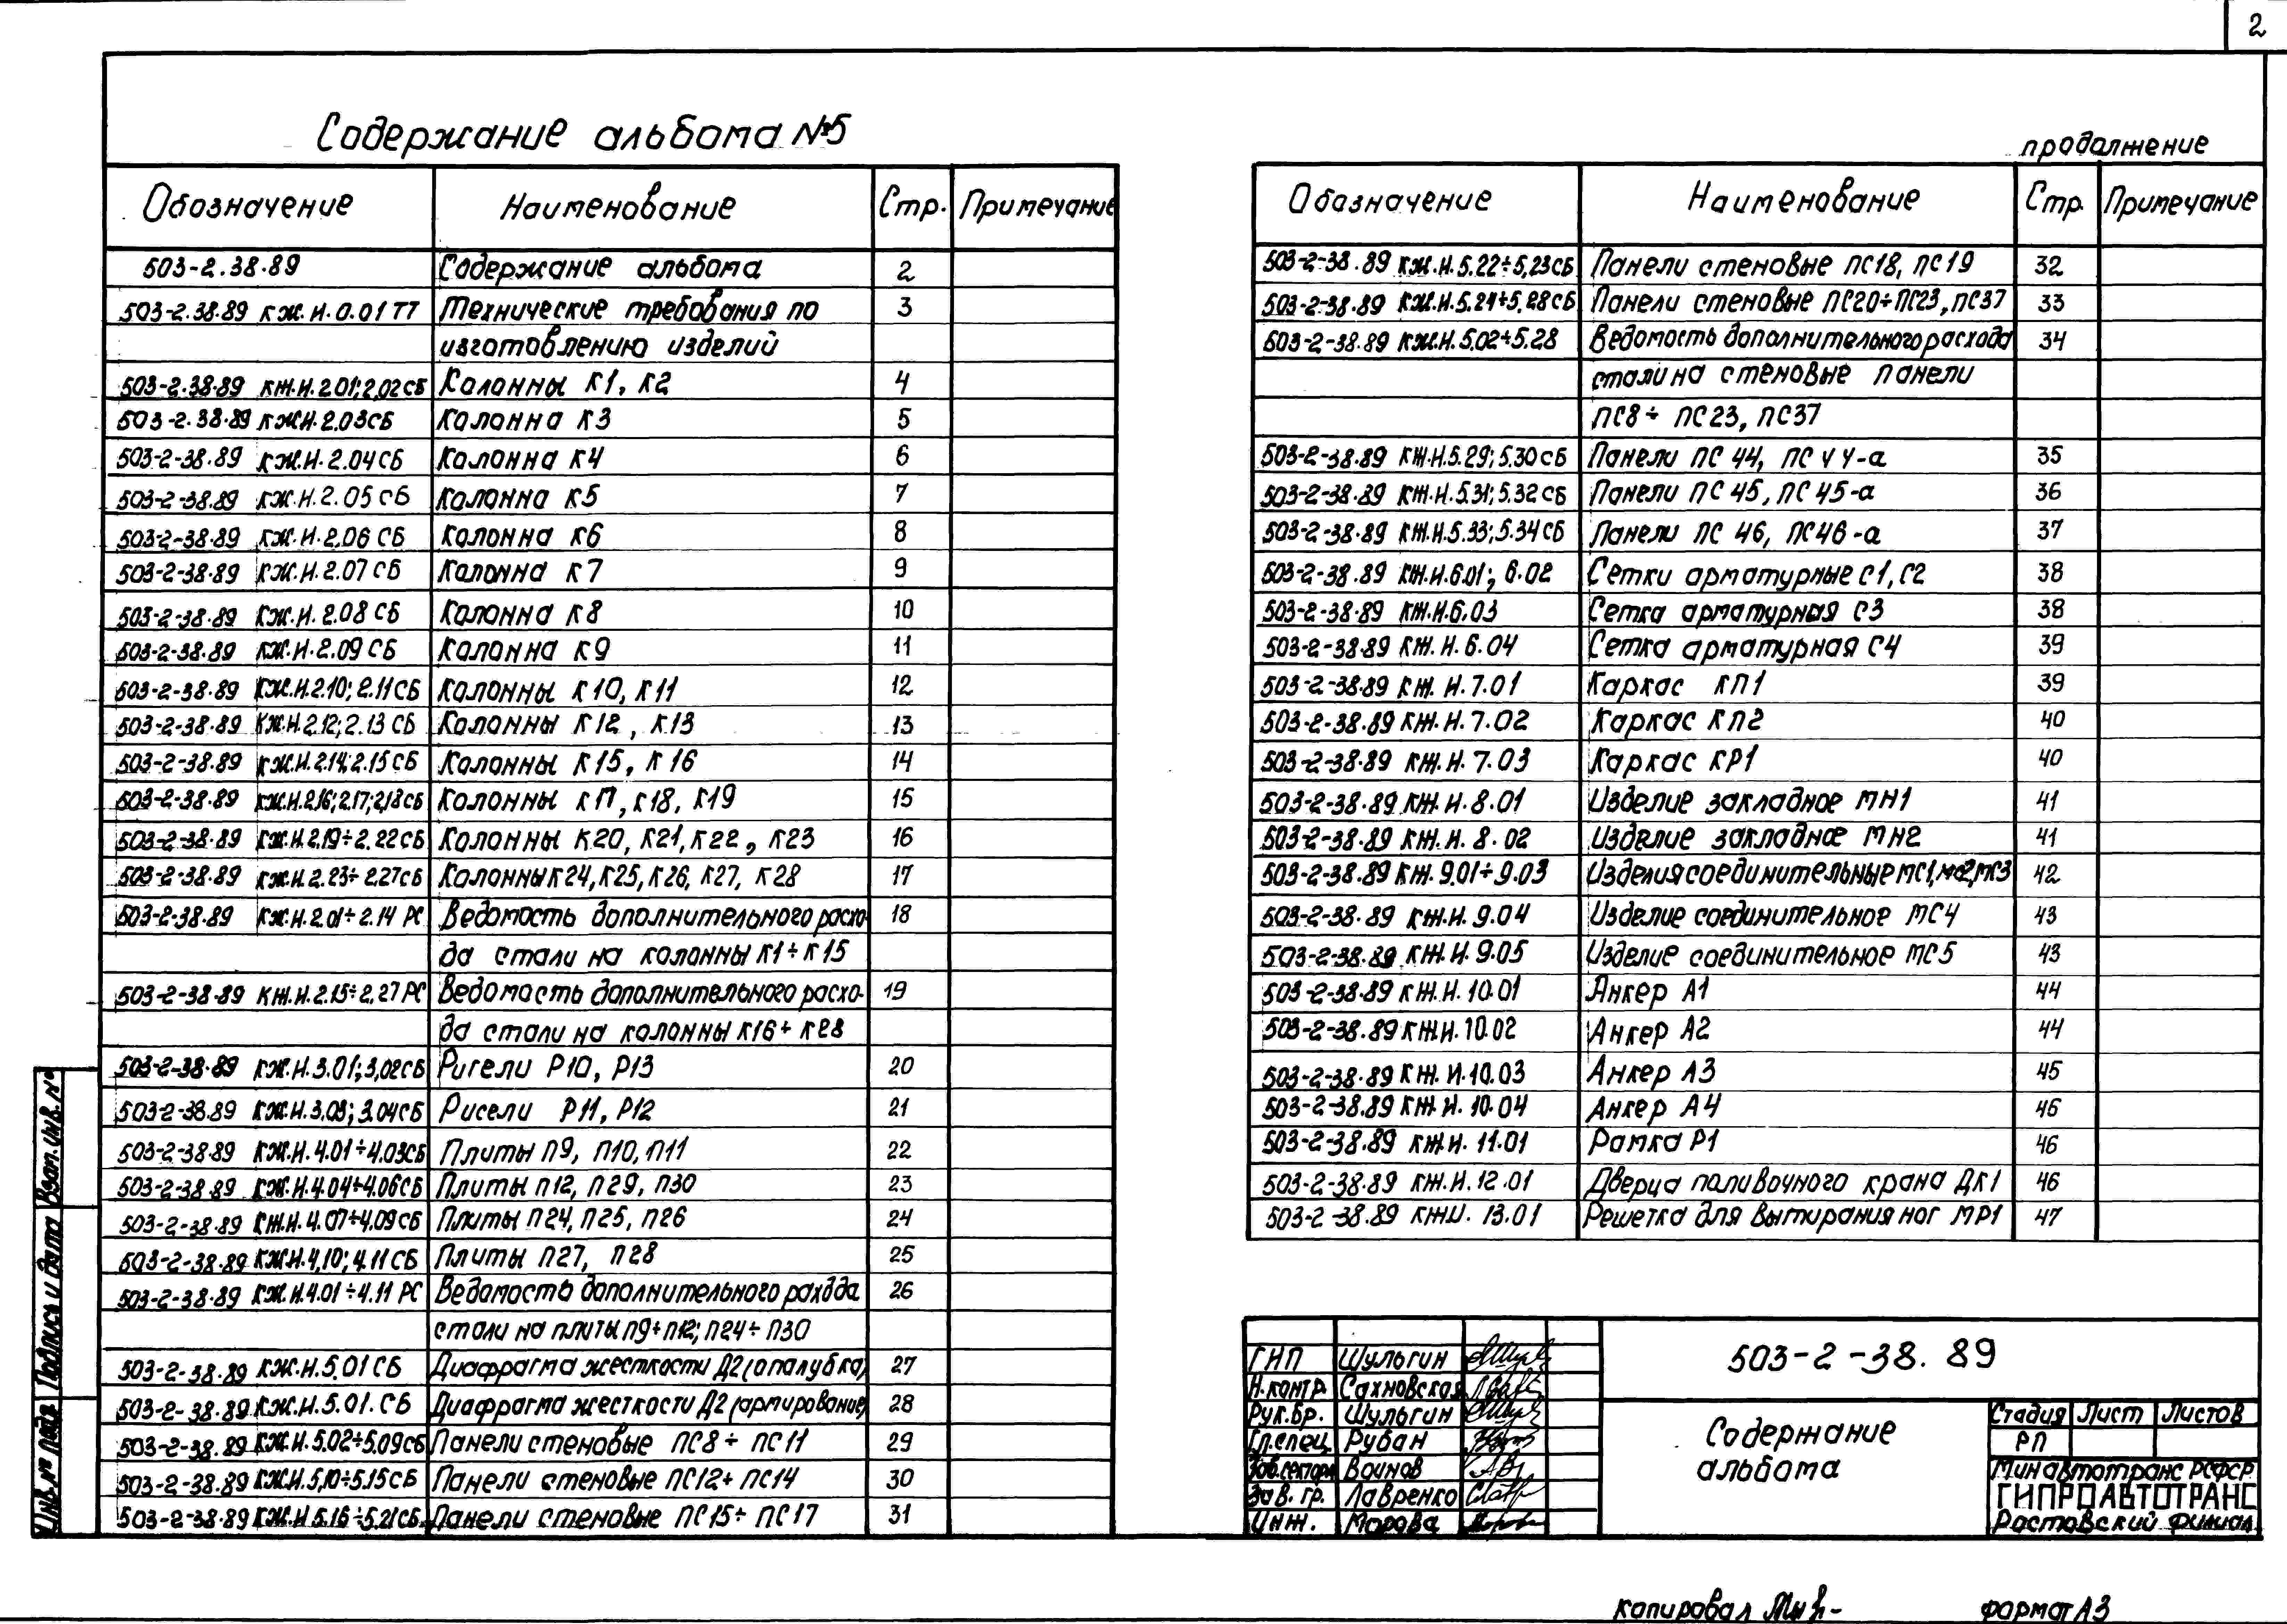 2
Содержание альбома №5
Обозначение Наименование Стр. Примечание
503-2.38.89 Содержание альбома 2
503-2.38.89 КЖ.И.0.01 ТТ Технические требования по 3
изготовлению изделий
503-2.38.89 КЖ.И.2.01; 2.02 СБ Колонны К1, К2 4
503-2.38.89 КЖИ.2.03СБ Колонна К3 5
503-2-38.89 КЖ.И.2.04 СБ Колонна К4 6
503-2-38.89 КЖ.И.2.05 СБ Колонна К5 7
503-2-38.89 КЖ.И.2.06 СБ Колонна К6 8
503-2-38.89 КЖ.И.2.07 СБ Колонна К7 9
503-2-38.89 КЖ.И.2.08 СБ Колонна К8 10
503-2-38.89 КЖ.И.2.09 СБ Колонна К9 11
503-2-38.89 КЖ.И.2.10; 2.11 СБ Колонны К10, К11 12
503-2-38.89 КЖ.И.2.12; 2.13 СБ Колонны К12, К13 13
503-2-38.89 КЖ.И.2.14; 2.15 СБ Колонны К15, К16 14
503-2-38.89 КЖ.И.2.16; 2.17; 2.18 СБ Колонны К17, К18, К19 15
503-2-38.89 КЖ.И.2.19÷2.22 СБ Колонны К20, К21, К22, К23 16
503-2-38.89 КЖ.И.2.23÷2.27 СБ Колонны К24, К25, К26, К27, К28 17
503-2-38.89 КЖ.И.2.01÷2.14 РС Ведомость дополнительного расхо- 18
да стали на колонны К1÷К15
503-2-38-89 КЖ.И.2.15÷2.27 РС Ведомость дополнительного расхо- 19
да стали на колонны К16÷К28
503-2-38.89 КЖ.И.3.01; 3.02 СБ Ригели Р10, Р13 20
503-2-38.89 КЖ.И.3.03; 3.04 СБ Ригели Р11, Р12 21
503-2-38.89 КЖ.И.4.01÷4.03 СБ Плиты П9, П10, П11 22
503-2-38.89 КЖ.И.4.04÷4.06 СБ Плиты П12, П29, П30 23
503-2-38.89 КЖ.И.4.07÷4.09 СБ Плиты П24, П25, П26 24
503-2-38.89 КЖ.И.4.10; 4.11 СБ Плиты П27, П28 25
503-2-38.89 КЖ.И.4.01÷4.11 РС Ведомость дополнительного рахода 26
стали на плиты П9÷П12; П24÷П30
503-2-38.89 КЖ.И.5.01 СБ Диафрагма жесткости Д2 (опалубка) 27
503-2-38.89 КЖ.И.5.01.СБ Диафрагма жесткости Д2 (армирование) 28
503-2-38.89 КЖ.И.5.02÷5.09 СБ Панели стеновые ПС8÷ПС11 29
503-2-38.89 КЖ.И.5.10÷5.15 СБ Панели стеновые ПС12÷ПС14 30
503-2-38.89 КЖ.И.5.16÷5.21 СБ Панели стеновые ПС15÷ПС17 31
продолжение
Обозначение Наименование Стр. Примечание
503-2-38.89 КЖ.И.5.22÷5.23 СБ Панели стеновые ПС18, ПС19 32
503-2-38.89 КЖ.И.5.24÷5.28 СБ Панели стеновые ПС20÷ПС23, ПС37 33
503-2-38.89 КЖ.И.5.02÷5.28 Ведомость дополнительного расхода 34
стали на стеновые панели
ПС8÷ПС23, ПС37
503-2-38.89 КЖ.И.5.29; 5.30 СБ Панели ПС44, ПС44-а 35
503-2-38.89 КЖ.И.5.31; 5.32 СБ Панели ПС45, ПС45-а 36
503-2-38.89 КЖ.И.5.33; 5.34 СБ Панели ПС46, ПС46-а 37
503-2-38.89 КЖ.И.6.01; 6.02 Сетки арматурные С1, С2 38
503-2-38.89 КЖ.И.6.03 Сетка арматурная С3 38
503-2-38.89 КЖ.И.6.04 Сетка арматурная С4 39
503-2-38.89 КЖ.И.7.01 Каркас КП1 39
503-2-38.89 КЖ.И.7.02 Каркас КП2 40
503-2-38.89 КЖ.И.7.03 Каркас КР1 40
503-2-38.89 КЖ.И.8.01 Изделие закладное МН1 41
503-2-38.89 КЖ.И.8.02 Изделие закладное МН2 41
503-2-38.89 КЖ.9.01÷9.03 Изделия соединительные МС1, МС2, МС3 42
503-2-38.89 КЖ.И.9.04 Изделие соединительное МС4 43
503-2-38.89 КЖ.И.9.05 Изделие соединительное МС5 43
503-2-38.89 КЖ.И.10.01 Анкер А1 44
503-2-38.89 КЖ.И.10.02 Анкер А2 44
503-2-38.89 КЖ.И.10.03 Анкер А3 45
503-2-38.89 КЖ.И.10.04 Анкер А4 45
503-2-38.89 КЖ.И.11.01 Рамка Р1 46
503-2-38.89 КЖ.И.12.01 Дверца поливочного крана ДК1 46
503-2-38.89 КЖ.И.13.01 Решетка для вытирания ног МР1 47
Взам. инв. №
Подпись и дата
Инв. № подл.
ГИП Шульгин
Н.контр. Сахновская
Рук.бр. Шульгин
Гл.спец. Рубан
Зав.сектора Воинов
Зав. гр. Лавренко
Инж. Морова
503-2-38.89
Содержание
альбома
Стадия Лист Листов
РП
Минавтотранс РСФСР
ГИПРОАВТОТРАНС
Ростовский филиал
копировал
формат А3